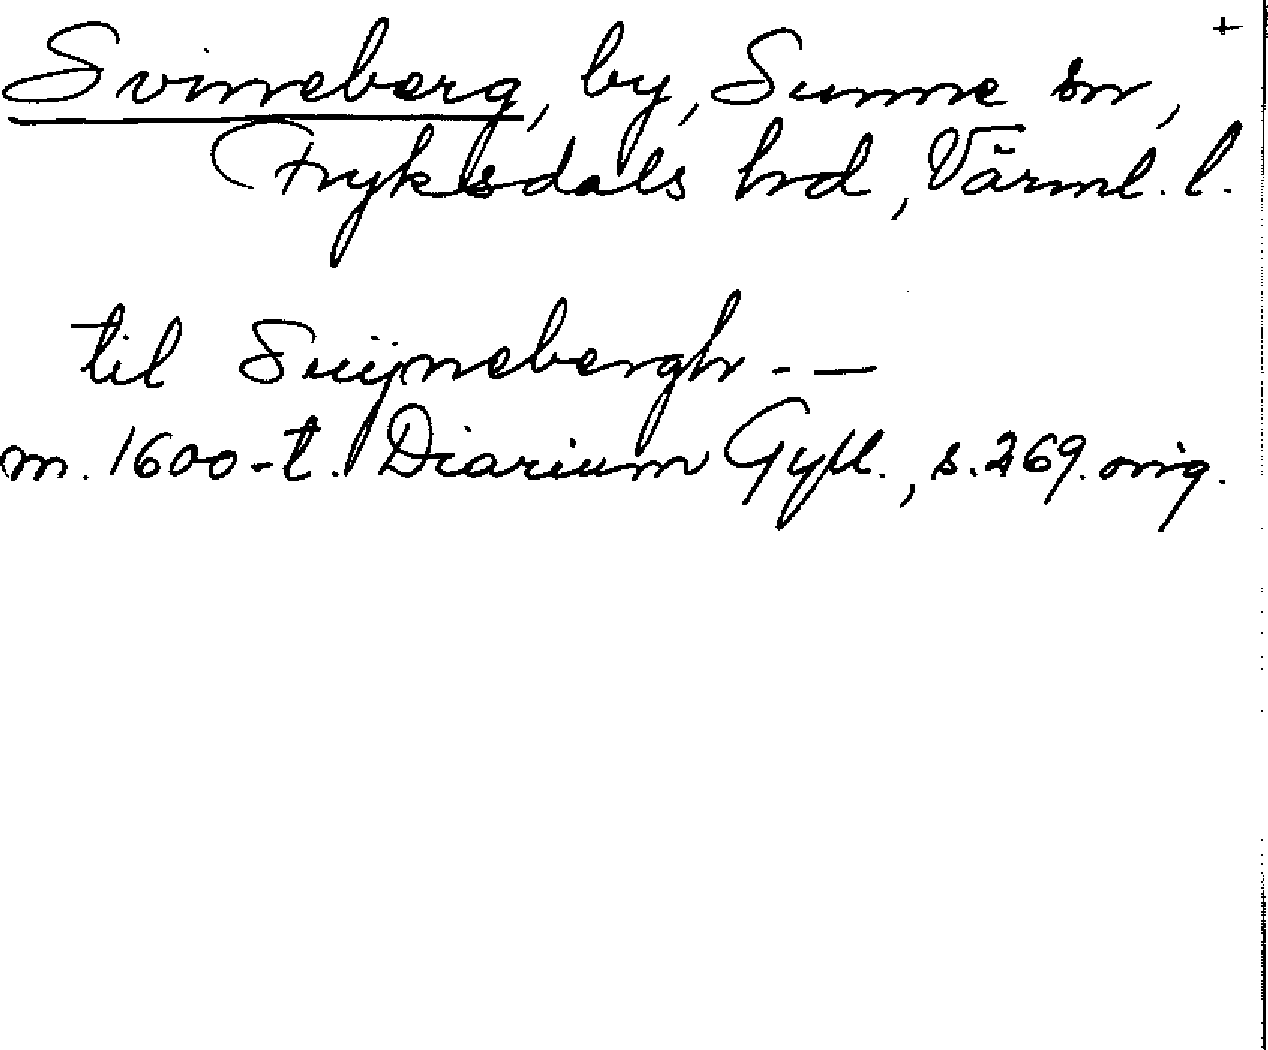 +
Svineberg, by, Sunne sn,
Fryksdals hrd, Värml. l.
til Suijnebergh - —
m. 1600-t. Diarium Gyll., s. 269. orig.